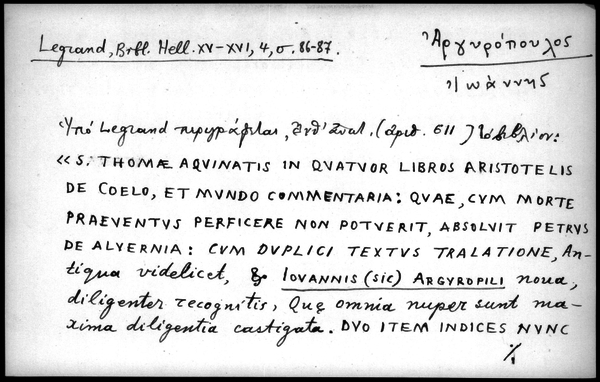 Legrand, Bibl. Hell. XV-XVI, 4, σ. 86-87.
Ἀργυρόπουλος
Ἰωάννης
Ὑπὸ Legrand περιγράφεται, (ἀριθ. 611) τὸ βιβλίον:
«S. THOMÆ AQVINATIS IN QVATVOR LIBROS ARISTOTELIS
DE COELO, ET MVNDO COMMENTARIA: QVAE, CVM MORTE
PRAEVENTVS PERFICERE NON POTVERIT, ABSOLVIT PETRVS
DE ALVERNIA: CVM DVPLICI TEXTVS TRALATIONE, An-
tiqua videlicet, & IOVANNIS (sic) ARGYROPILI noua,
diligenter recognitis, Quę omnia nuper sunt ma-
xima diligentia castigata. DVO ITEM INDICES NVNC
./.